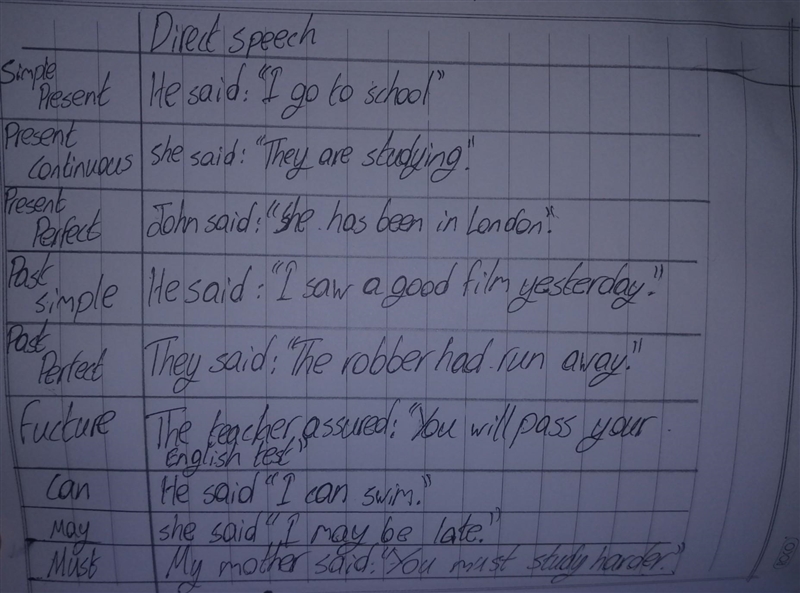 Direct speech
Simple
Present
He said: "I go to school"
Present
Continuous
she said: "They are studying."
Present
Perfect
John said: "She has been in London."
Past
simple
He said: "I saw a good film yesterday."
Past
Perfect
They said: "The robber had run away."
Fucture
The teacher assured: "You will pass your
English test"
Can
He said "I can swim."
May
she said "I may be late."
Must
My mother said: "You must study harder."